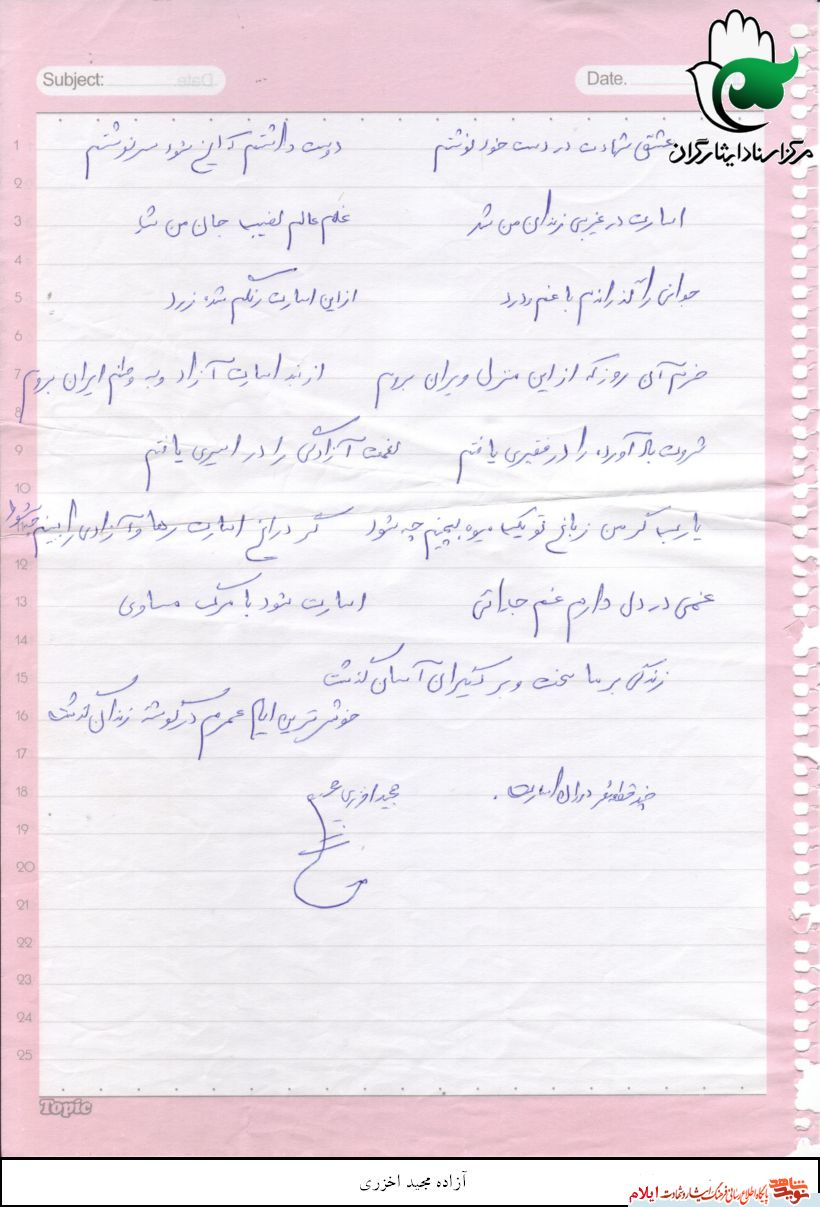 Subject:
Date.
مرکز اسناد ایثارگران
عشق شهادت در دست خود نوشتم دوست داشتم که این شود سرنوشتم
اسارت در غریبی زندان من شد غم عالم نصیب جان من شد
جوانی را گذراندم با غم و درد از این اسارت رنگم شده زرد
خرم آن روز که از این منزل ویران بروم از بند اسارت آزاد و به وطنم ایران بروم
ثروت باد آورده را در فقیری یافتم نعمت آزادگی را در اسیری یافتم
یا رب گر من ز باغ تو یک میوه بچینم چه شود گر در اسارت رها و آزادی را ببینم چه شود
غمی در دل دارم غم جدائی اسارت شود با مرگ مساوی
زندگی بر ما سخت و بر دیگران آسان گذشت
خوشترین ایام عمرم در گوشه زندان گذشت
چند قطعه شعر دوران اسارت.
مجید اخزری
1
2
3
4
5
6
7
8
9
10
12
13
14
15
16
17
18
19
20
21
22
23
24
25
Topic
آزاده مجید اخزری
نوید شاهد
پایگاه اطلاع رسانی فرهنگ ایثار و شهادت ایلام